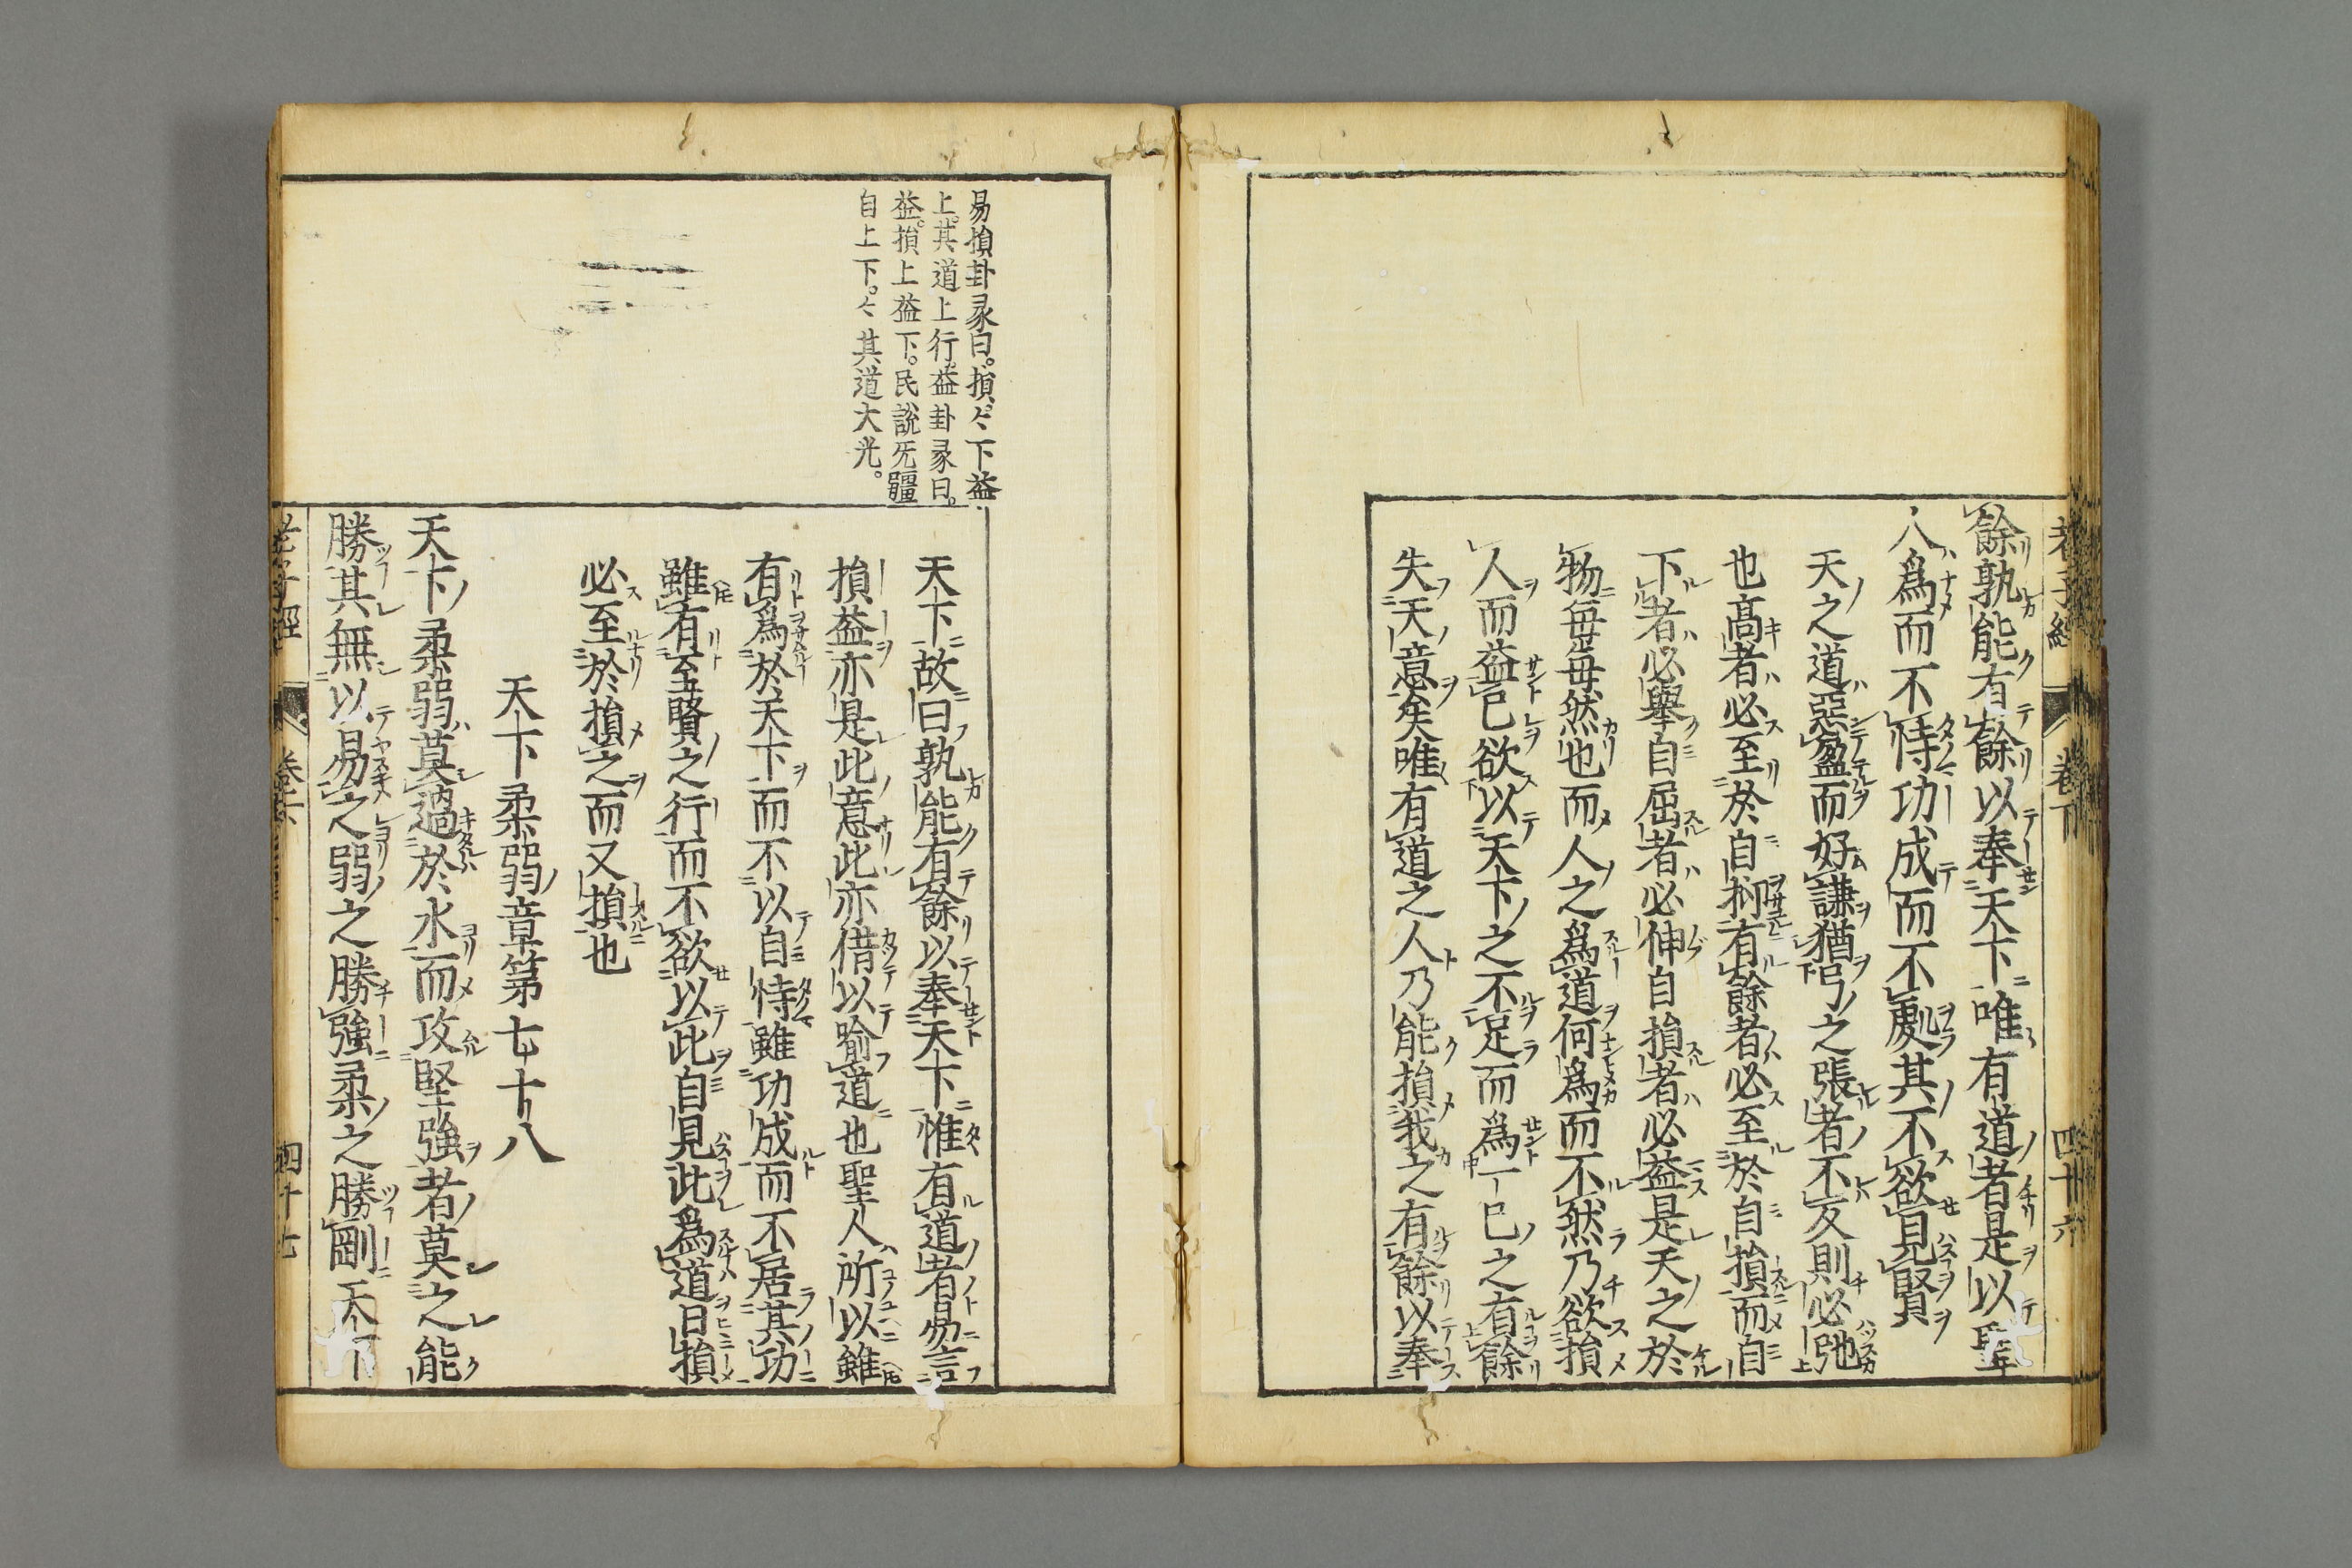 餘孰能有餘以奉天下唯有道者是以聖
人爲而不恃功成而不處其不欲見賢
天之道惡盈而好謙猶弓之張者不反則必弛
也高者必至於自抑有餘者必至於自損而自
下者必舉自屈者必伸自損者必益是天之於
物每每然也而人之爲道何爲而不然乃欲損
人而益已欲以天下之不足而爲一已之有餘
失天意矣唯有道之人乃能損我之有餘以奉
老子經 卷下 四十六
易損卦彖曰。損〻下益
上。其道上行。益卦彖曰。
益。損上益下。民說无疆
自上下〻。其道大光。
天下故曰孰能有餘以奉天下惟有道者易言
損益亦是此意此亦借以喻道也聖人所以雖
有爲於天下而不以自恃雖功成而不居其功
雖有至賢之行而不欲以此自見此爲道日損
必至於損之而又損也
天下柔弱章第七十八
天下柔弱莫過於水而攻堅強者莫之能
勝其無以易之弱之勝強柔之勝剛天下
老子經 卷下 四十七